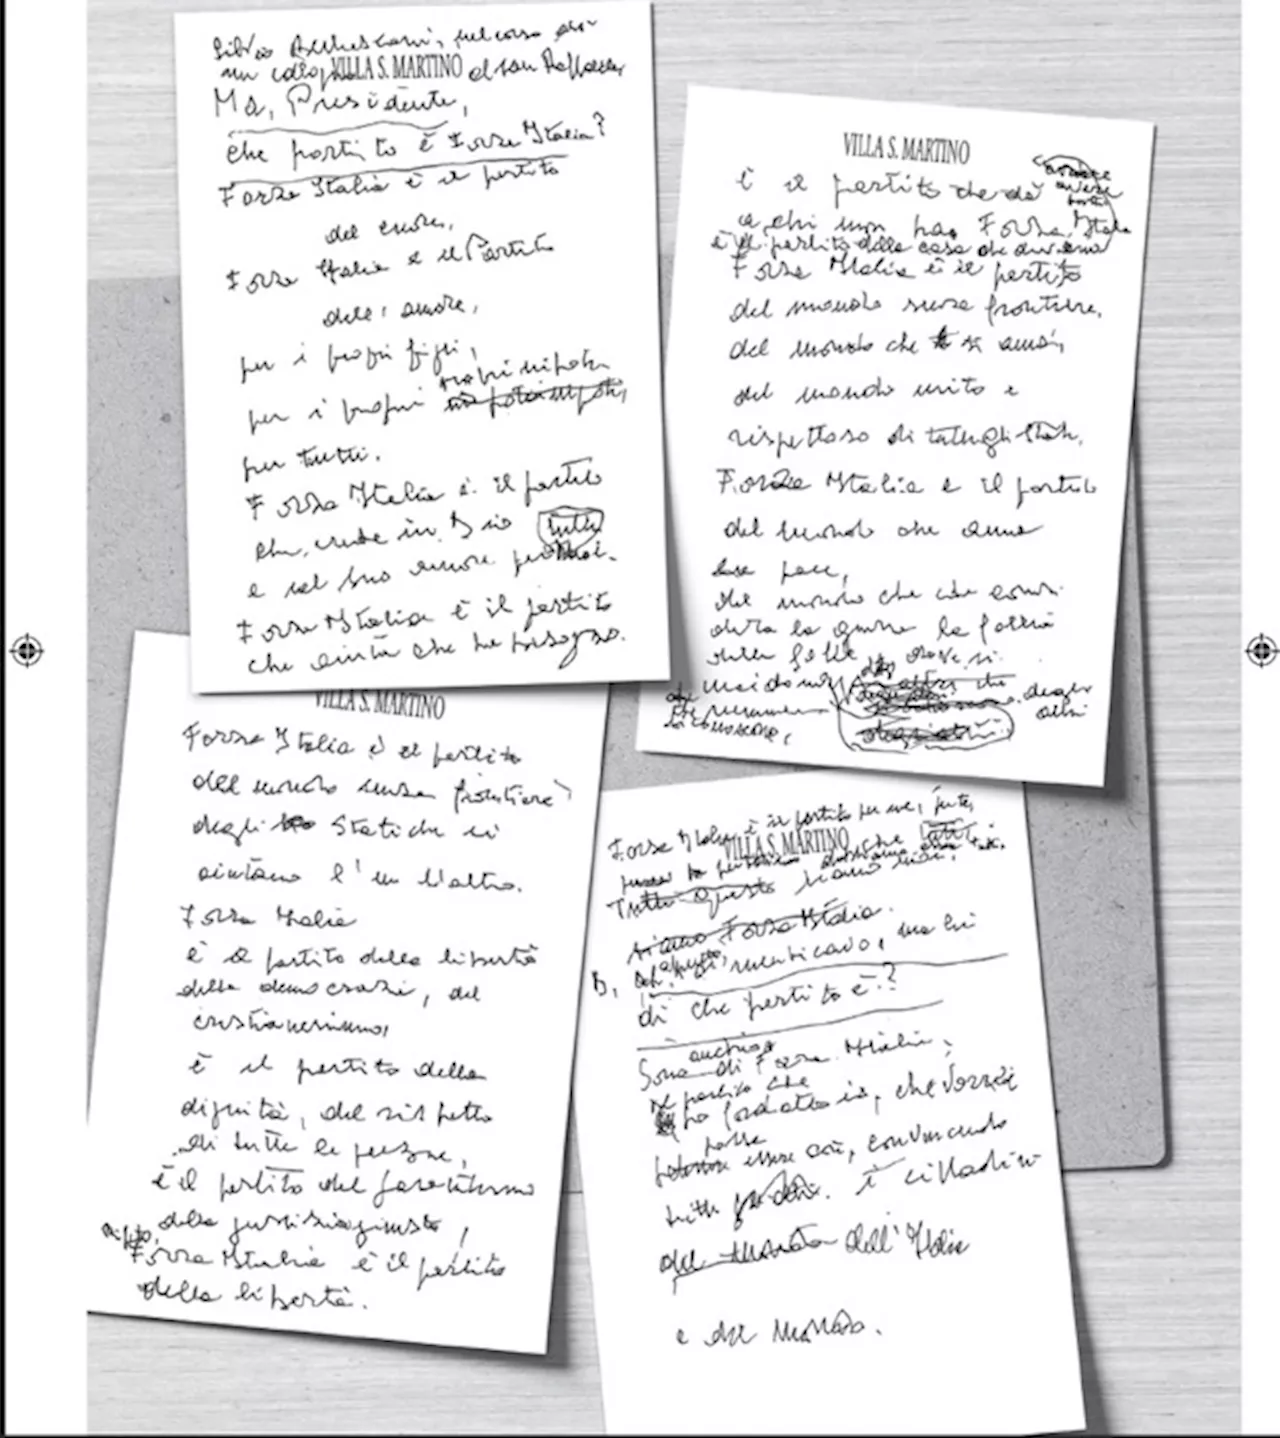 Silvio Berlusconi, nel corso di
un colloquio al San Raffaele
VILLA S. MARTINO
Ma, Presidente,
che partito è Forza Italia?
Forza Italia è il partito
del cuore,
Forza Italia è il Partito
dell'amore,
per i propri figli,
propri nipoti
per i propri
per tutti.
Forza Italia è il partito
che crede in Dio
e nel suo amore per tutti noi.
Forza Italia è il partito
che aiuta chi ha bisogno.
VILLA S. MARTINO
è il partito che dà
a chi non ha, Forza Italia
è il partito della casa che
Forza Italia è il partito
del mondo senza frontiere,
del mondo che si ama,
del mondo unito e
rispettoso di tutti gli Stati,
Forza Italia è il partito
del mondo che ama
la pace,
del mondo che consi
dera la guerra la follia
delle follie, dove si
uccidono
degli
altri
VILLA S. MARTINO
Forza Italia è il partito
del mondo senza frontiere,
degli Stati che si
aiutano l'un l'altro.
Forza Italia
è il partito della libertà
della democrazia, del
cristianesimo,
è il partito della
dignità, del rispetto
di tutte le persone,
è il partito del garantismo
della giustizia giusta,
Forza Italia è il partito
della libertà.
Forza Italia è il partito per me,
VILLA S. MARTINO
Tutto questo siamo noi.
siamo Forza Italia.
dimenticavo, ma lei
di che partito è?
anch'io
Sono di Forza Italia,
il partito che
ho fondato io, che vorrei
potesse essere così, convincendo
tutti i cittadini
del dell'Italia
e del Mondo.